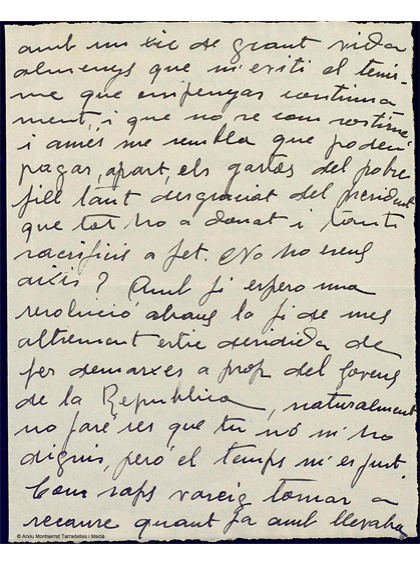 amb un xic de grant vida
almenys que m'eviti el tenir-
me que empenyar continua
ment, i que no se com sostinc
i amés me sembla que poden
pagar, apart, els gastos del pobre
fill tant desgraciat del president
que tot ho a donat i tants
sacrificis a fet. No ho creus
aixis? Amb fi espero una
resolució abans la fi de mes
altrement estic decidida de
fer demarxes a prop del Govern
de la Republica, naturalment
no faré res que tu no m'ho
diguis, però el temps m'es just.
Com saps vareig tornar a
recaure quant ja amb llevaba
© Arxiu Montserrat Tarradellas i Macià